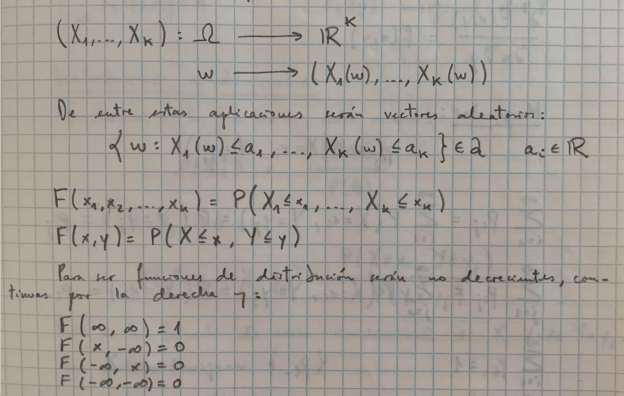 (X₁,..., X_K) : Ω ⟶ ℝ^K
w ⟶ (X₁(w), ..., X_K(w))
De entre estas aplicaciones serán vectores aleatorios:
{w : X₁(w) ≤ a₁, ..., X_K(w) ≤ a_K} ∈ a a_i ∈ ℝ
F(x₁, x₂, ..., x_K) = P(X₁ ≤ x₁, ..., X_K ≤ x_K)
F(x,y) = P(X ≤ x, Y ≤ y)
Para ser funciones de distribución serán no decrecientes, con-
tinuas por la derecha y:
F(∞, ∞) = 1
F(x, -∞) = 0
F(-∞, x) = 0
F(-∞, -∞) = 0